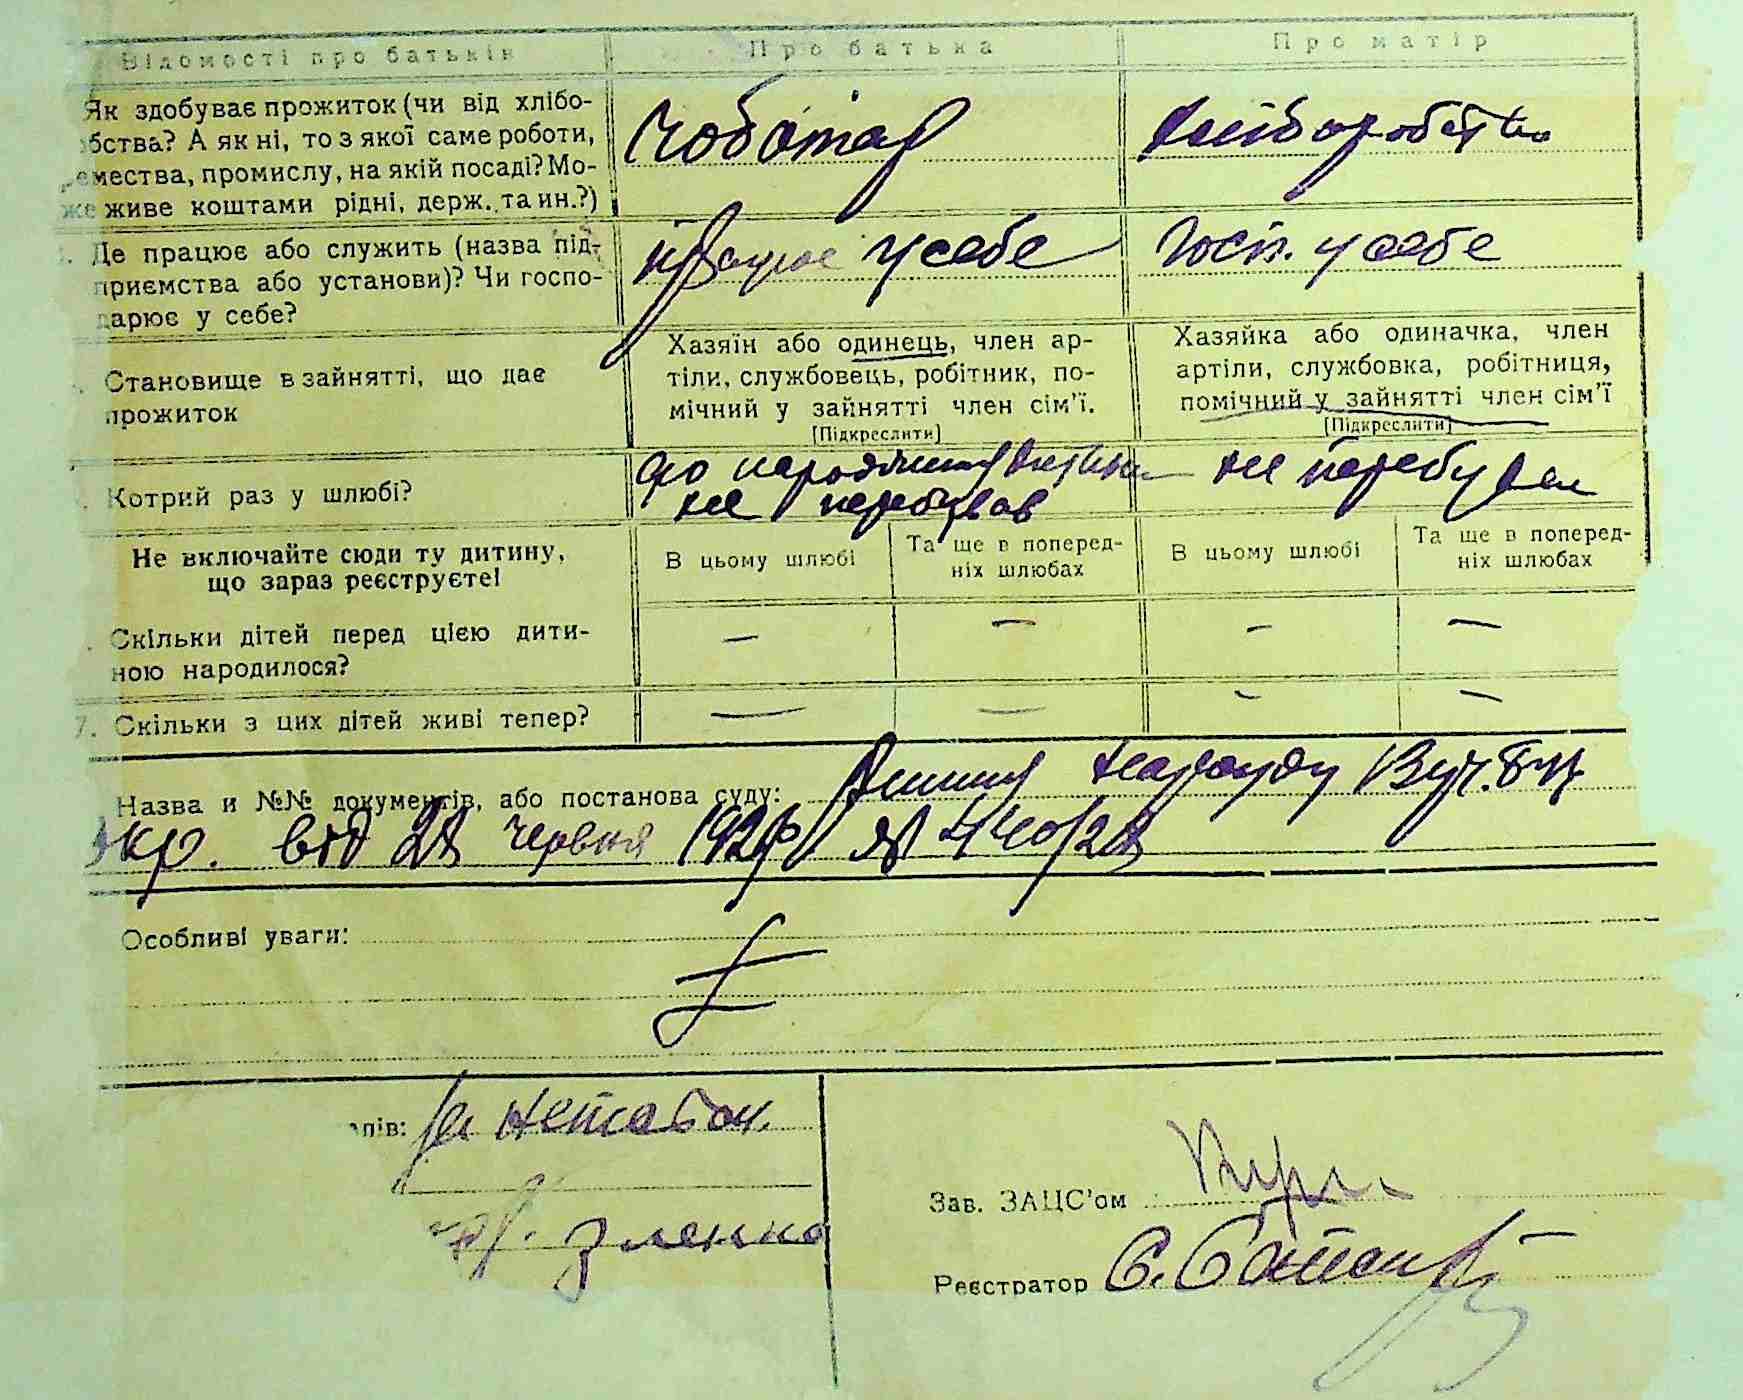 Відомості про батьків
Про батька
Про матір
Як здобуває прожиток (чи від хлібо-
бства? А як ні, то з якої саме роботи,
емества, промислу, на якій посаді? Мо-
же живе коштами рідні, держ. та ин.?)
Чоботар
хліборобство
Де працює або служить (назва під-
приємства або установи)? Чи госпо-
дарює у себе?
працює у себе
Госп. у себе
Становище в зайнятті, що дає
прожиток
Хазяїн або одинець, член ар-
тіли, службовець, робітник, по-
мічний у зайнятті член сім'ї.
[Підкреслити]
Хазяйка або одиначка, член
артіли, службовка, робітниця,
помічний у зайнятті член сім'ї
[Підкреслити]
Котрий раз у шлюбі?
до народження дитини
не перебував
не перебувала
Не включайте сюди ту дитину,
що зараз реєструєте!
В цьому шлюбі
Та ще в поперед-
ніх шлюбах
В цьому шлюбі
Та ще в поперед-
ніх шлюбах
Скільки дітей перед цією дити-
ною народилося?
— — — —
7. Скільки з цих дітей живі тепер?
— — — —
Назва и №№ документів, або постанова суду: Нарсуду
окр. від 28 червня 192 р №
Особливі уваги:
пів:
Зленко
Зав. ЗАЦС'ом
Реєстратор